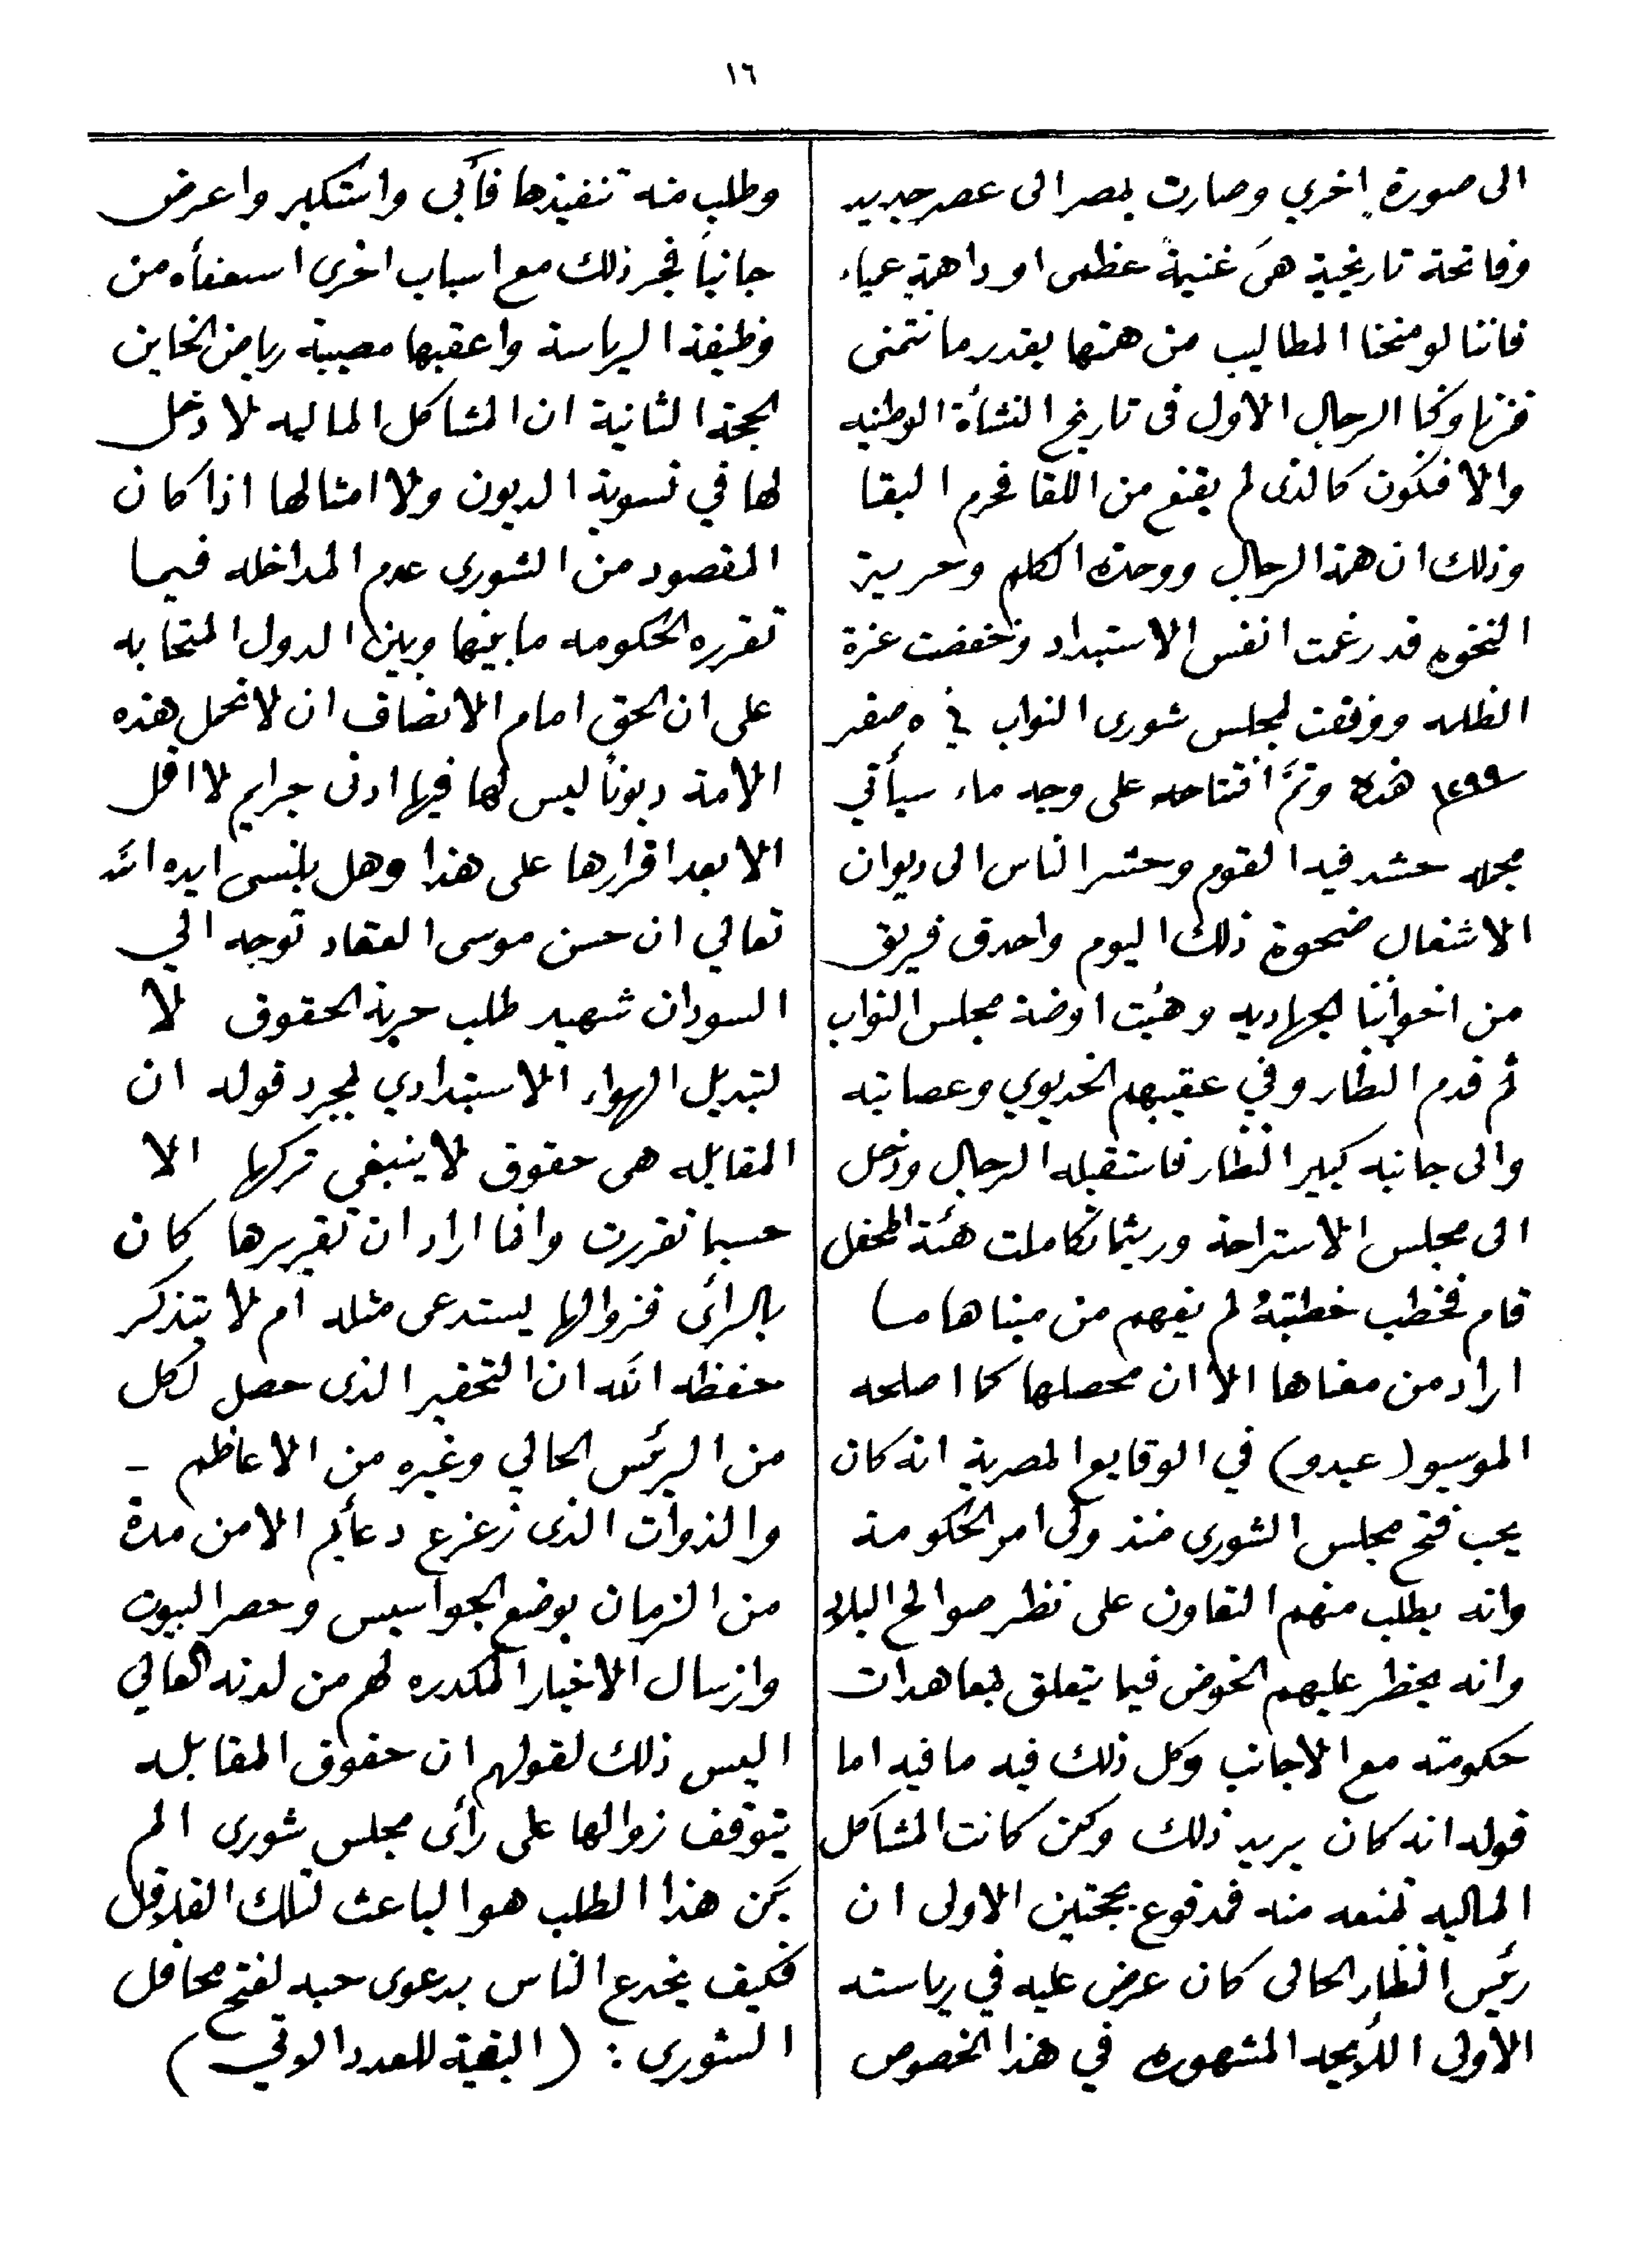 ١٦
الى صورة اخري وصارت بمصر الى عصر جديد
وفاتحة تاريخية هى غنيمة عظمى او داهمة عمياء
فاننا لو منحنا المطاليب من همتها بقدر ما نتمنى
فزنا وكنا الرجال الاول فى تاريخ النشأة الوطنيه
والا فنكون كالذى لم يقنع من اللقا فحرم البقا
وذلك ان همة الرجال ووحدة الكلم وحرية
النخوه قد رغمت انفس الاستبداد وخفضت عزة
الظلمه ووفقت لمجلس شورى النواب في ٥ صفر
١٢٩٩ هذه وتمَّ افتتاحه على وجه ماء سيأتي
مجمله حشد فيه القوم وحشر الناس الى ديوان
الاشغال ضحوة ذلك اليوم واحدق فريق
من اخواننا الجهاديه وهيئت اوضة مجلس النواب
ثم قدم النظار وفي عقبهم الخديوي وعصابته
والى جانبه كبير النظار فاستقبله الرجال ودخل
الى مجلس الاستراحة وريثما تكاملت هئة المحفل
قام فخطب خطبتهُ لم يفهم من مبناها ما
اراد من معناها الا ان محصلها كما اصلحه
الموسيو (عبدو) في الوقايع المصرية انه كان
يحب فتح مجلس الشورى منذ ولى امر الحكومة
وانه يطلب منهم التعاون على نظر صوالح البلاد
وانه يحظر عليهم الخوض فيما يتعلق بمعاهدات
حكومته مع الاجانب وكل ذلك فيه ما فيه اما
قوله انه كان يريد ذلك ولكن كانت المشاكل
الماليه تمنعه منه فمدفوع بحجتين الاولى ان
رئيس النظار الحالى كان عرض عليه في رياسته
الأولى اللأيحه المشهوره في هذا الخصوص
وطلب منه تنفيذها فأبى واستكبر واعرض
جانباً فجر ذلك مع اسباب اخرى اسعفأه من
وظيفة الرياسة واعقبها مصيبة رياض الخاين
الحجة الثانية ان المشاكل الماليه لا دخل
لها في تسوية الديون ولا امثالها اذا كان
المقصود من الشورى عدم المداخله فيما
تقرره الحكومه ما بينها وبين الدول المتحابه
على ان الحق امام الانصاف ان لا تحمل هذه
الامة ديوناً ليس لها فيها ادنى جرايم لا اقل
الا بعد اقرارها على هذا وهل ينسى ايده الله
تعالي ان حسن موسى العقاد توجه الي
السودان شهيد طلب حرية الحقوق لا
لتبديل الهواء الاستبدادي لمجرد قوله ان
المقابله هى حقوق لا ينبغى تركها الا
حسبما تقررت وانما اراد ان تقريرها كان
بالرائ فزوالها يستدعى مثله ام لا يتذكر
حفظه الله ان التحقير الذى حصل لكل
من الرئيس الحالي وغيره من الاعاظم –
والذوات الذى زعزع دعأيم الامن مدة
من الزمان بوضع الجواسيس وحصر البيوت
وارسال الاخبار المكدره لهم من لدنه العالي
اليس ذلك لقولهم ان حقوق المقابله
يتوقف زوالها على رأى مجلس شورى الم
يكن هذا الطلب هو الباعث لتلك القلاقل
فكيف يخدع الناس بدعوى حبه لفتح محافل
الشورى : (البقية للعدد الاتي)